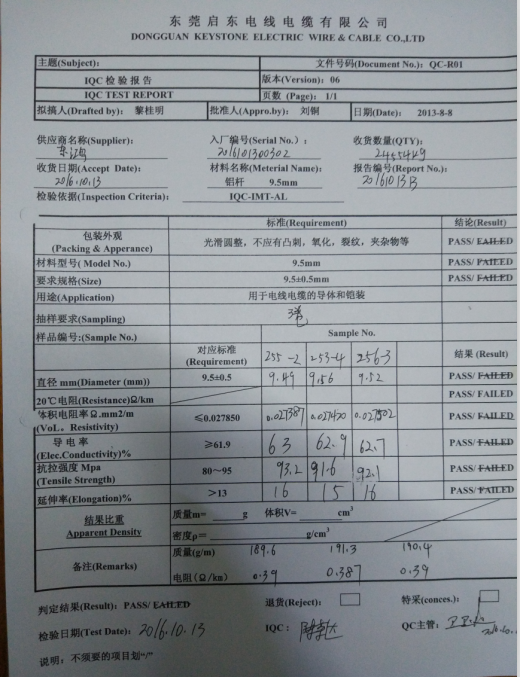 东莞启东电线电缆有限公司
DONGGUAN KEYSTONE ELECTRIC WIRE & CABLE CO.,LTD
主题(Subject): 文件号码(Document No.): QC-R01
IQC 检验报告 版本(Version): 06
IQC TEST REPORT 页数 (Page): 1/1
拟搞人(Drafted by): 黎桂明 批准人(Appro.by): 刘铜 日期(Date): 2013-8-8
供应商名称(Supplier): 入厂编号(Serial No.): 收货数量(QTY):
2016101300302 2455kg
收货日期(Accept Date): 材料名称(Meterial Name): 报告编号(Report No.):
2016.10.13 铝杆 9.5mm 20161013B
检验依据(Inspection Criteria): IQC-IMT-AL
标准(Requirement) 结论(Result)
包装外观
(Packing & Apperance) 光滑圆整，不应有凸刺，氧化，裂纹，夹杂物等 PASS/ FAILED
材料型号( Model No.) 9.5mm PASS/ FAILED
要求规格(Size) 9.5±0.5mm PASS/ FAILED
用途(Application) 用于电线电缆的导体和铠装
抽样要求(Sampling) 3卷
样品编号:(Sample No.) Sample No.
对应标准
(Requirement) 255-2 253-4 256-3 结果 (Result)
直径 mm(Diameter (mm)) 9.5±0.5 9.49 9.56 9.52 PASS/ FAILED
20℃电阻(Resistance)Ω/km PASS/ FAILED
体积电阻率Ω.mm2/m
(VoL. Resistivity) ≤0.027850 0.027387 0.027430 0.027502 PASS/ FAILED
导电率
(Elec.Conductivity)% ≥61.9 63 62.9 62.7 PASS/ FAILED
抗拉强度 Mpa
(Tensile Strength) 80~95 93.2 91.6 92.1 PASS/ FAILED
延伸率(Elongation)% >13 16 15 16 PASS/ FAILED
结果比重
Apparent Density 质量m= g 体积V= cm³
密度ρ= g/cm³
备注(Remarks) 质量(g/m) 189.6 191.3 190.4
电阻 (Ω/km) 0.39 0.387 0.39
判定结果(Result): PASS/ FAILED 退货(Reject): 特采(conces.):
检验日期(Test Date): 2016.10.13 IQC: QC主管:
说明: 不须要的项目划“/”